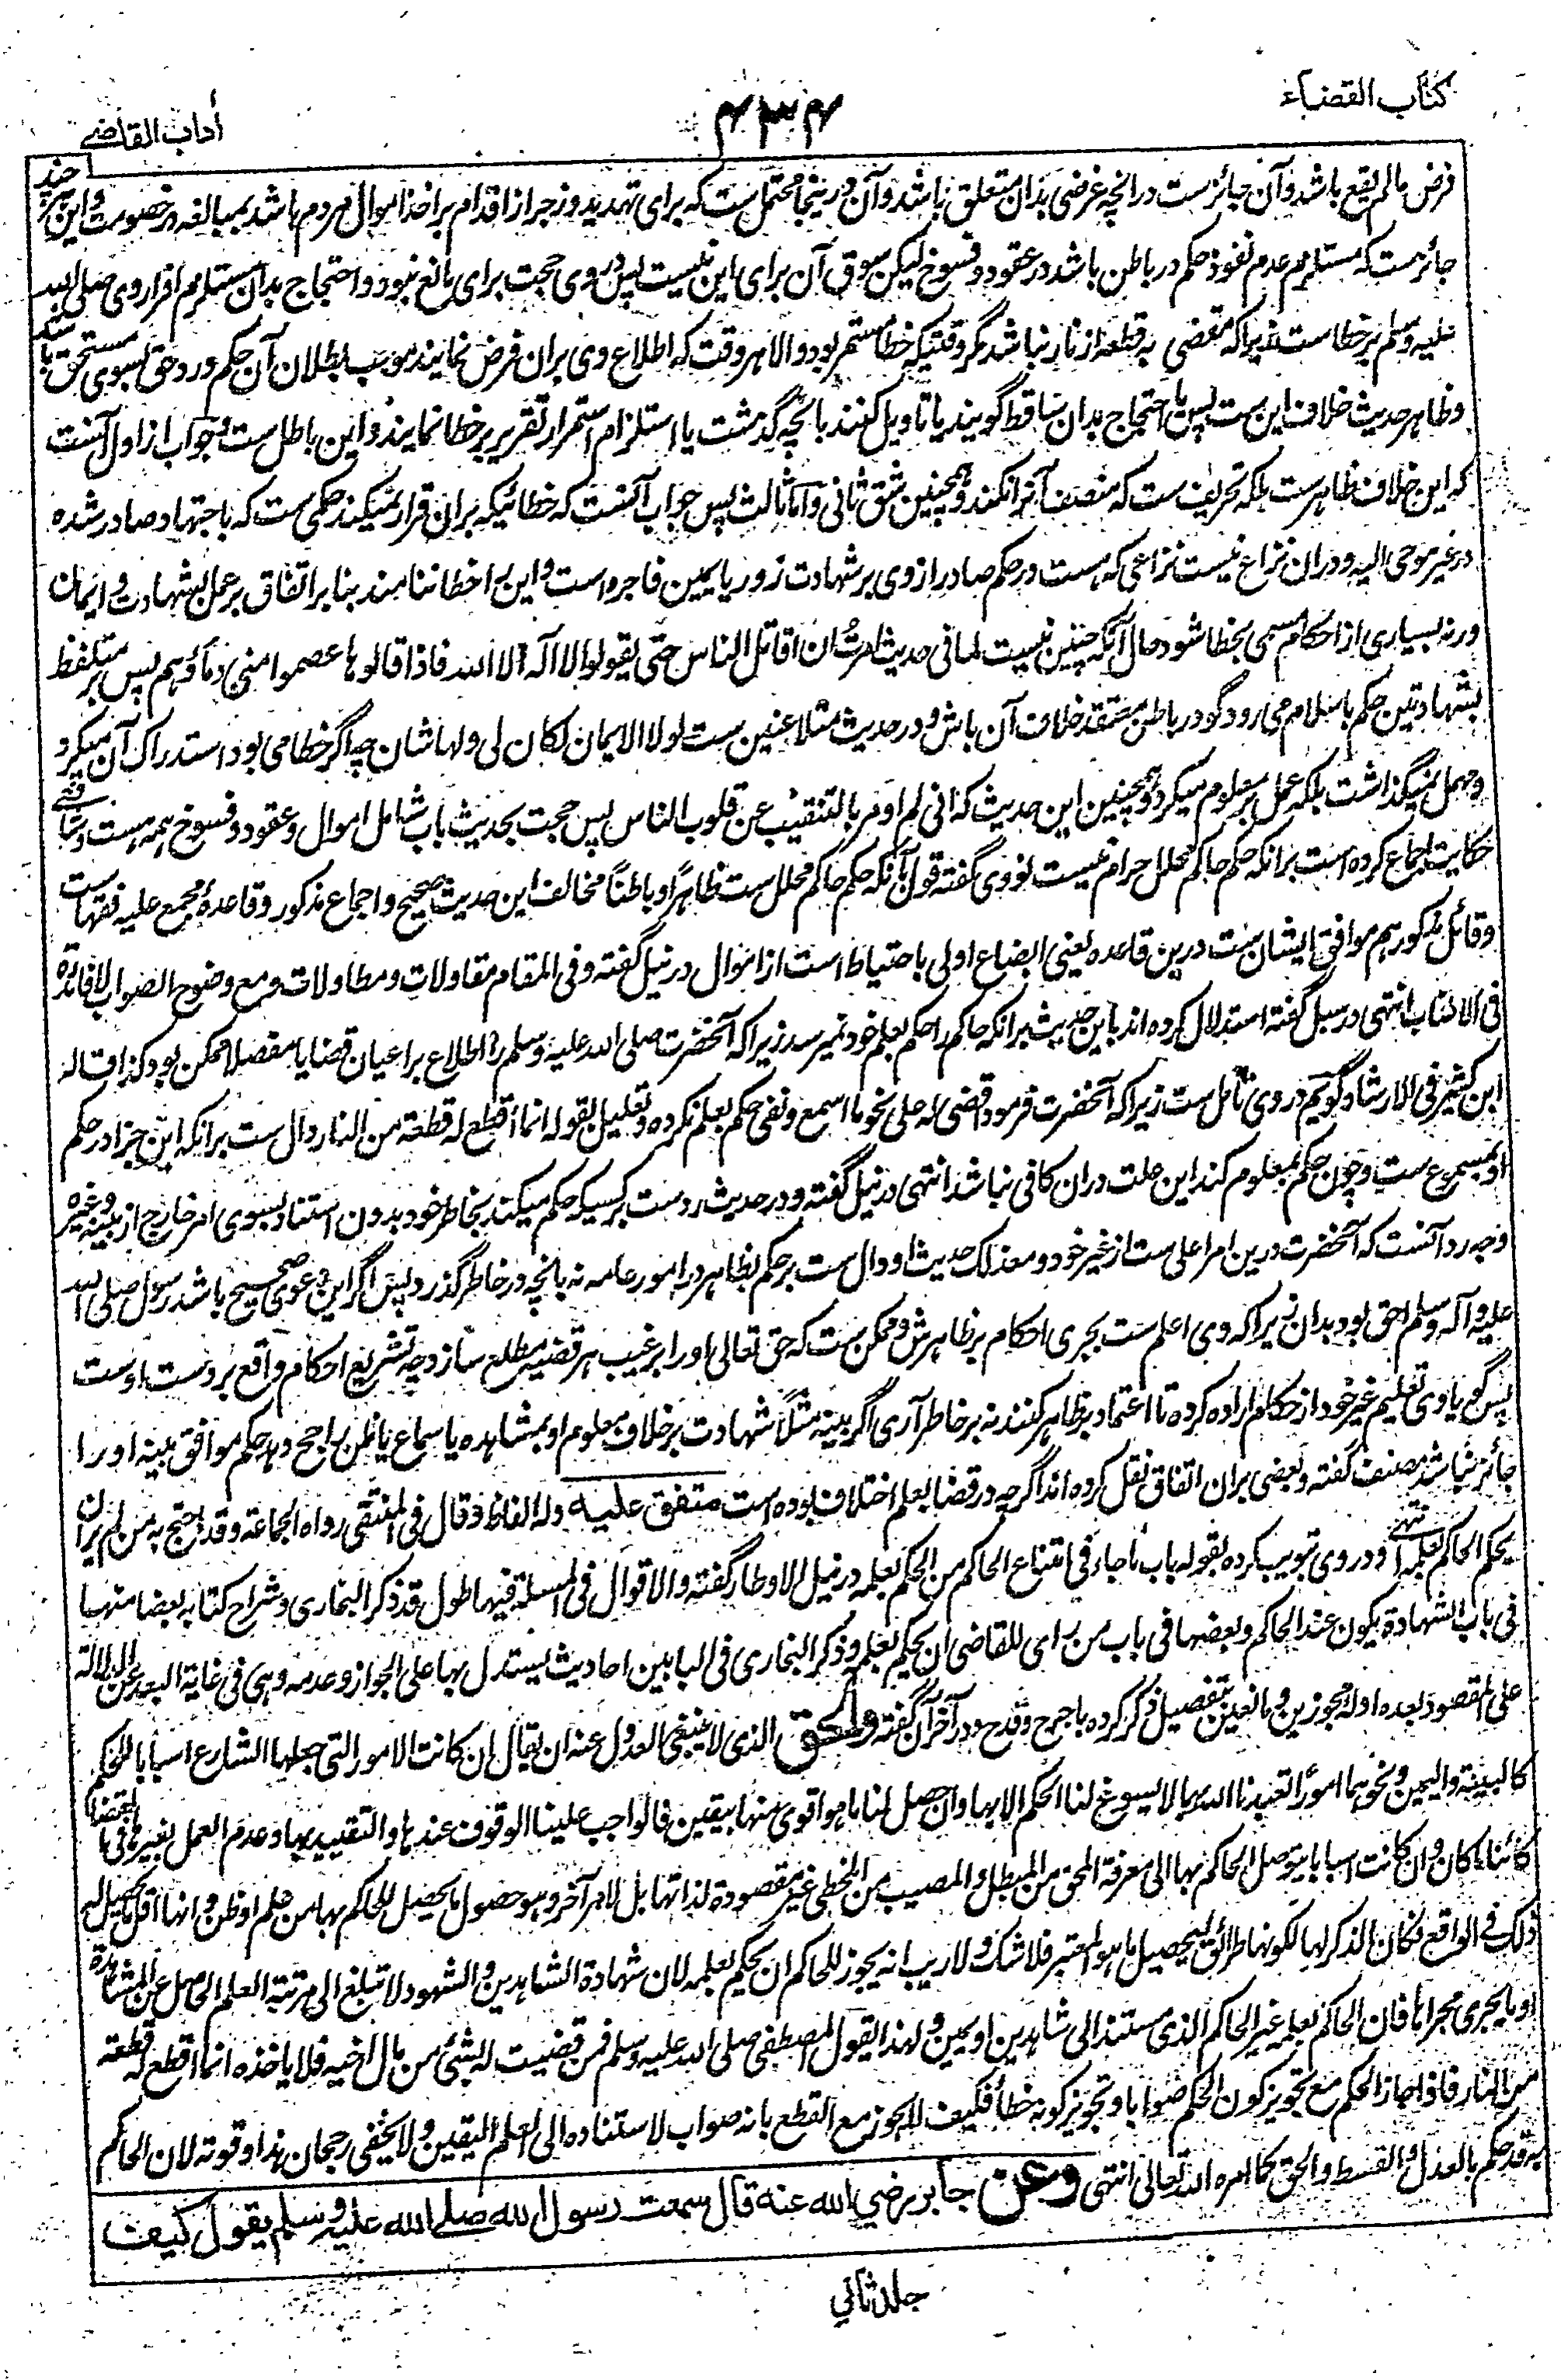 کتاب القضاء
۴۳۴
آداب القاضے
فرض مالم یقع باشد و آن جائزست در انچه غرضی بدان متعلق باشد و آن درینجا محتمل ست که برای تهدید و زجر از اقدام بر اخذ اموال مردم باشد بمبالغه در خصومت و این هر چند
جائزست که مستلزم عدم نفوذ حکم در باطن باشد در عقود و فسوخ لیکن سوق آن برای این نیست پس در وی حجت برای مانع نبود و احتجاج بدان مستلزم اقرار وی صلی الله
علیه وسلم بر خطاست زیراکه مقضی به قطعه از نار نباشد مگر وقتیکه خطا مستمر بود والا هر وقت که اطلاع وی بران فرض نمایند موجب بطلان آن حکم و رد حق بسوی مستحق باشد
و ظاهر حدیث خلاف این ست پس یا احتجاج بدان ساقط گویند یا تاویل کنند بانچه گذشت یا استلزام استمرار تقریر بر خطا نمایند و این باطل ست و جواب از اول آنست
که این خلاف ظاهرست بلکه تحریف ست که منصف آنرا نکند و همچنین شق ثانی و اما ثالث پس جواب آنست که خطائیکه بران قرار نمیکند حکمی ست که باجتهاد صادر شده
در غیر موحی الیه و دران نزاع نیست نزاعی که هست در حکم صادر از وی بر شهادت زور یا یمین فاجره است و این را خطا ننامند بنابر اتفاق بر عمل بشهادت و ایمان
ورنه بسیاری از احکام مسمی بخطا شود حال آنکه چنین نیست لما فی حدیث امرتُ ان اقاتل الناس حتی یقولوا لا اله الا الله فاذا قالوها عصموا منی دماؤهم پس بر متلفظ
بشهادتین حکم باسلام میرود گو در باطن معتقد خلاف آن باشد و در حدیث متلاعنین ست لولا الایمان لکان لی ولها شان چه اگر خطا می بود استدراک آن میکرد
و مهمل نمیگذاشت بلکه عمل بر معلوم میکرد و همچنین این حدیث که انی لم اومر بالتنقیب عن قلوب الناس پس حجت بحدیث باب شامل اموال و عقود و فسوخ همه هست و شافعی
حکایت اجماع کرده است برانکه حکم حاکم محلل حرام نیست نووی گفته قول بآنکه حکم حاکم محلل ست ظاهرًا و باطنًا مخالف این حدیث صحیح و اجماع مذکور و قاعدهٔ مجمع علیه فقهاست
و قائل مذکور هم موافق ایشان ست درین قاعده یعنی ابضاع اولی باحتیاط است از اموال در نیل گفته و فی المقام مقاولات و مطاولات و مع وضوح الصواب لا فائدة
فی الاطناب انتهی در سبل گفته استدلال کرده اند باین حدیث برانکه حاکم را حکم بعلم خود نمیرسد زیراکه آنحضرت صلی الله علیه وسلم را اطلاع بر اعیان قضایا مفصلا ممکن بود کذا قاله
ابن کثیر فی الارشاد گویم در وی تامل ست زیراکه آنحضرت فرمود اقضی له علی نحو ما اسمع و نفی حکم بعلم نکرده و تعلیل بقوله انما اقطع له قطعة من النار دال ست برانکه این جزا در حکم
او بمسموع ست و چون حکم بمعلوم کند این علت دران کافی نباشد انتهی در نیل گفته و در حدیث ردست بر کسیکه حکم میکند بخاطر خود بدون استناد بسوی امر خارج از بینه و غیره
وجه رد آنست که آنحضرت درین امر اعلی ست از غیر خود و معذلک حدیث او دال ست بر حکم بظاهر در امور عامه نه بانچه در خاطر گذرد پس اگر این دعوی صحیح باشد رسول صلی الله
علیه و آله وسلم احق بود بدان زیراکه وی اعلم ست بجری احکام بر ظاهرش و ممکن ست که حق تعالی او را بر غیب هر قضیه مطلع سازد چه تشریع احکام واقع بر دست اوست
پس گویا وی تعلیم غیر خود از حکام اراده کرده تا اعتماد بظاهر کنند نه بر خاطر آری اگر بینه مثلًا شهادت بر خلاف معلوم او بمشاهده یا سماع یا ظن راجح دهد حکم موافق بینه او را
جائز نباشد مصنف گفته و بعضی بران اتفاق نقل کرده اند اگرچه در قضا بعلم اختلاف بوده است متفق علیه وله الفاظ و قال فی المنتقی رواه الجماعة وقد احتج به من لم یر ان
یحکم الحاکم بعلمه انتهی و در وی تبویب کرده بقوله باب ما جاء فی امتناع الحاکم من الحکم بعلمه در نیل الاوطار گفته والاقوال فی المسئلة فیها طول قد ذکر البخاری و شراح کتابه بعضا منها
فی باب الشهادة یکون عند الحاکم و بعضها فی باب من رای للقاضی ان یحکم بعلمه و ذکر البخاری فی البابین احادیث یستدل بها علی الجواز و عدمه وهی فی غایة البعد عن الدلالة
علی المقصود بعده ادلهٔ مجوزین و مانعین بتفصیل ذکر کرده با جرح و قدح و در آخر آن گفته والحق الذی لا ینبغی العدول عنه ان یقال ان کانت الامور التی جعلها الشارع اسبابا للحکم
کالبینة والیمین و نحوهما امورًا تعبدنا الله بها لا یسوغ لنا الحکم الا بها وان حصل لنا ما هو اقوی منها بیقین فالواجب علینا الوقوف عندها والتقیید بها و عدم العمل بغیرها فی القضاء
کائنا ما کان وان کانت اسبابا یتوصل الحاکم بها الی معرفة المحق من المبطل والمصیب من المخطی غیر مقصودة لذاتها بل لامر آخر وهو حصول ما یحصل للحاکم بها من علم او ظن وانها اقل ما یحصل له
ذلک فی الواقع فکان الذکر لها لکونها طرائق لتحصیل ما هو المعتبر فلا شک ولا ریب انه یجوز للحاکم ان یحکم بعلمه لان شهادة الشاهدین والشهود لا تبلغ الی مرتبة العلم الحاصل عن المشاهدة
او ما یجری مجراها فان الحاکم بعلمه غیر الحاکم الذی مستندا الی شاهدین او یمین ولهذا یقول المصطفی صلی الله علیه وسلم فمن قضیت له بشئ من مال اخیه فلا یاخذه انما اقطع له قطعة
من النار فاذا جاز الحکم مع تجویز کون الحکم صوابا و تجویز کونه خطأ فکیف لا یجوز مع القطع بانه صواب لاستناده الی العلم الیقین ولا یخفی رجحان هذا و قوته لان الحاکم
به قد حکم بالعدل والقسط والحق کما امره الله تعالی انتهی وعن جابر رضی الله عنه قال سمعت رسول الله صلے الله علیه وسلم یقول کیف
جلد ثانی